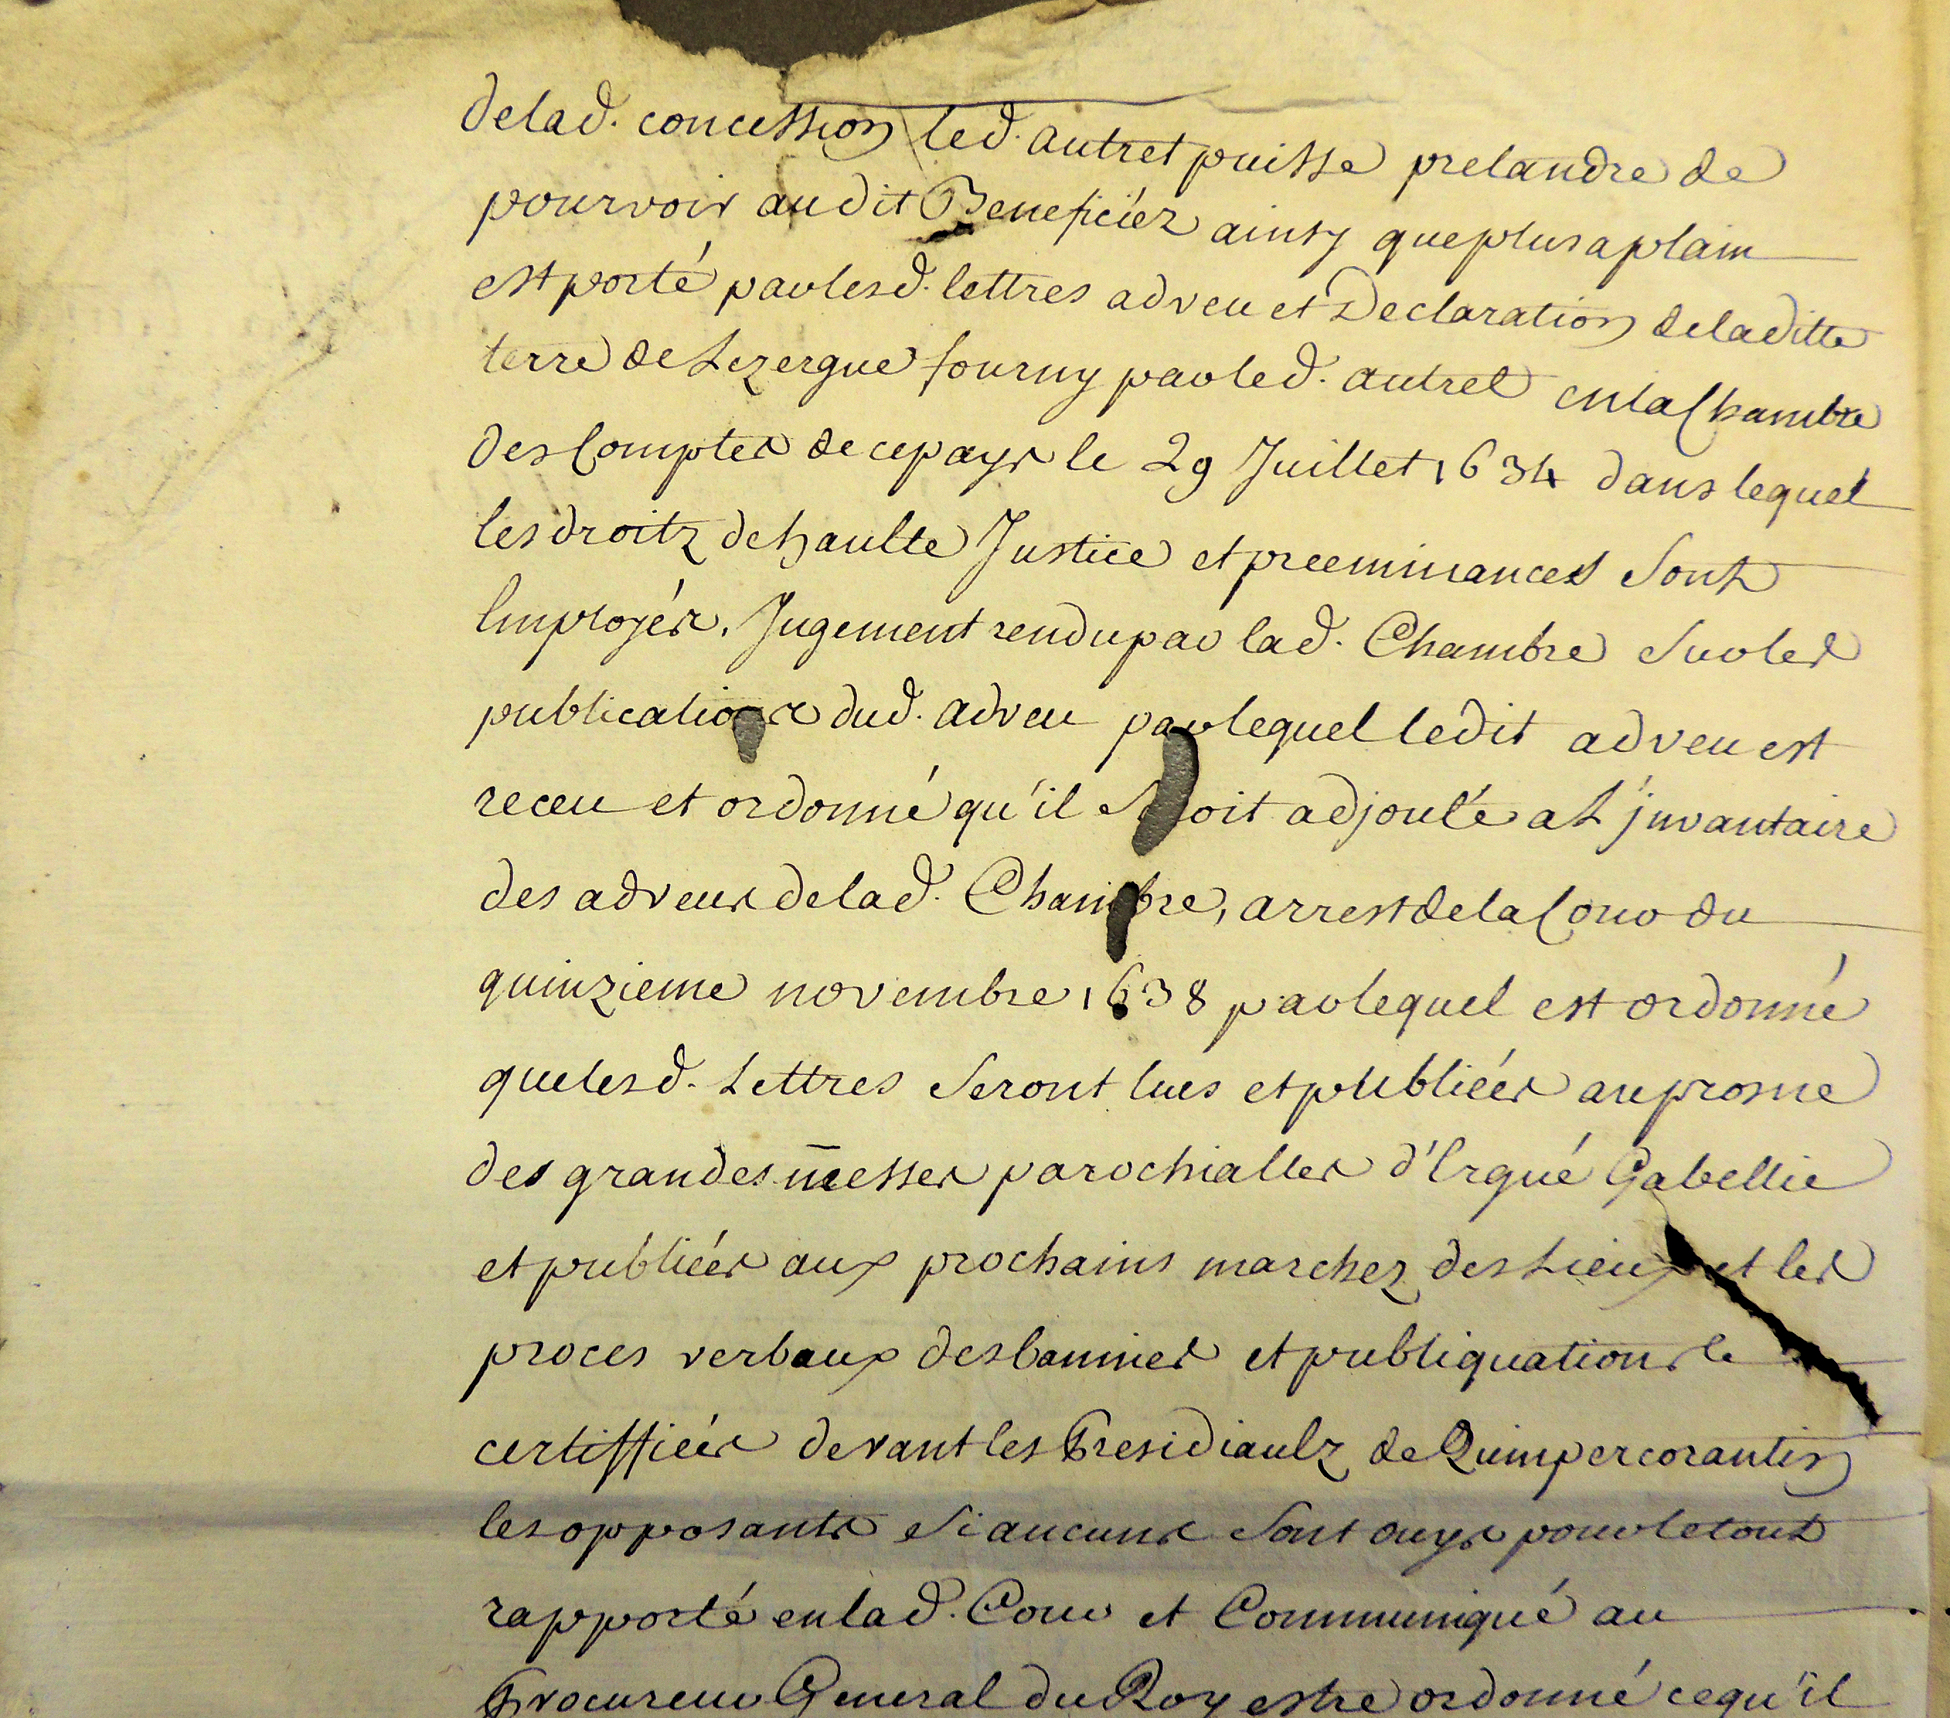 delad. concession led. autret puisse pretandre de
pourvoir audit Beneficiéz ainsy que plus a plain
est porté par lesd. lettres adveu et Declaration de laditte
terre de Lezergue fourny par led. autret en la Chambre
des Comptes de ce pays le 29 Juillet 1634 dans lequel
les droitz de haulte Justice et preeminances sont
Employés. Jugement rendu par lad. Chambre sur les
publications dud. adveu par lequel ledit adveu est
receu et ordonné qu'il soit adjouté a L'jnvantaire
des adveus de lad. Chambre, arrest de la Cour du
quinzieme novembre 1638 par lequel est ordonné
que lesd. Lettres seront lues et publiées au prosne
des grandes messes parochialles d'Ergué Gabellic
et publiées aux prochains marchez des Lieux et les
proces verbaux des bannies et publiquations le
certiffiées devant les Presidiaulz de Quimpercorantin
les opposants si aucuns sont ouys pour le tout
rapporté en lad. Cour et Communiqué au
Procureur General du Roy estre ordonné ce qu'il